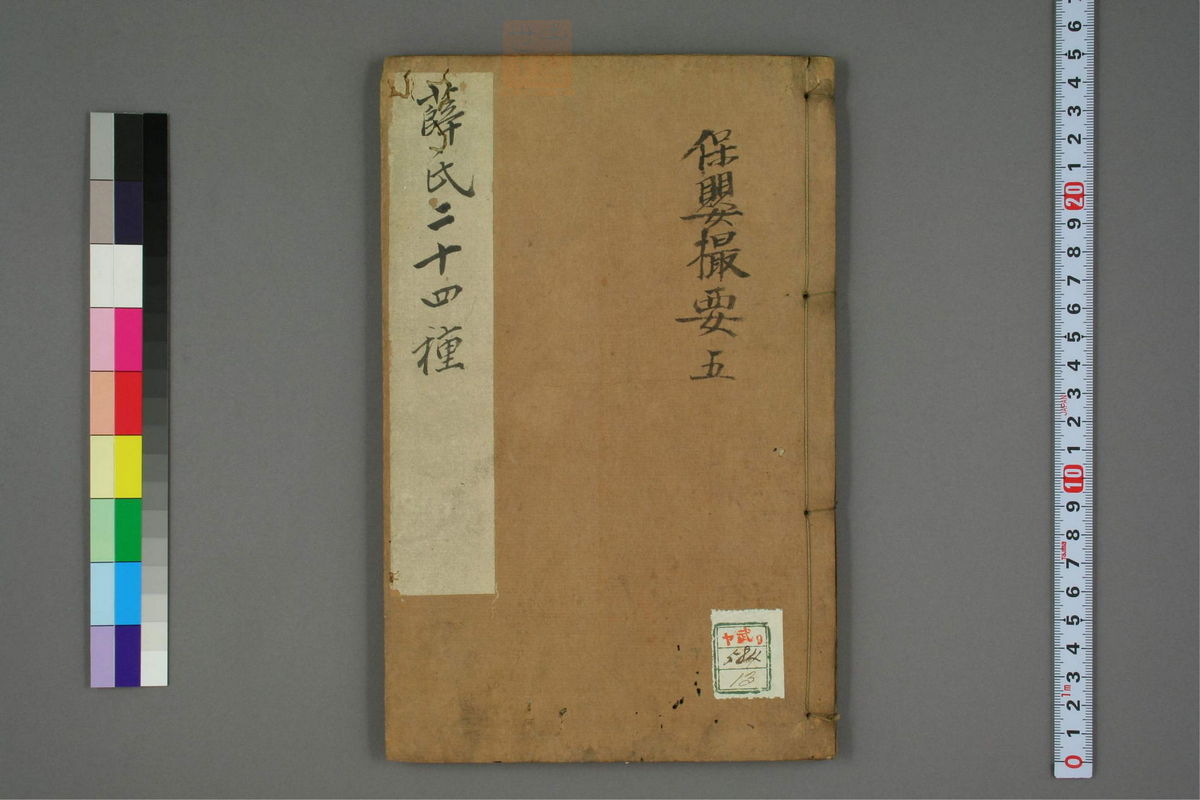 保嬰撮要 五
薛氏二十四種
ヤ武9
13
6
5
4
3
2
1
20
9
8
7
6
5
4
3
2
1
10
9
8
7
6
5
4
3
2
1
0
JAPAN
1m